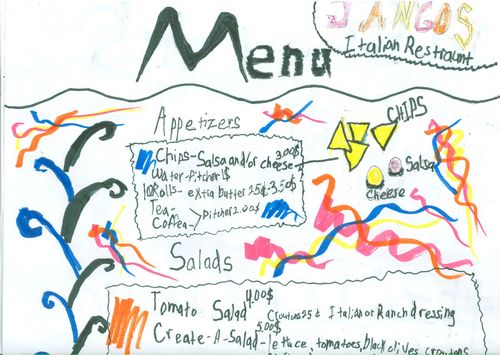 JANGOS
Italian Restraunt
Menu
Appetizers
Chips-Salsa and/or cheese 3.00$
Water-Pitcher 1$
10Rolls- extra butter 25¢-3.50$
Tea-
Coffea- >Pitcher 2.00$
CHIPS
Salsa
Cheese
Salads
Tomato Salad 4.00$ Croutons 25¢ Italian or Ranch dressing
Create-A-Salad 5.00$ - lettice, tomatoes, black olives, croutons